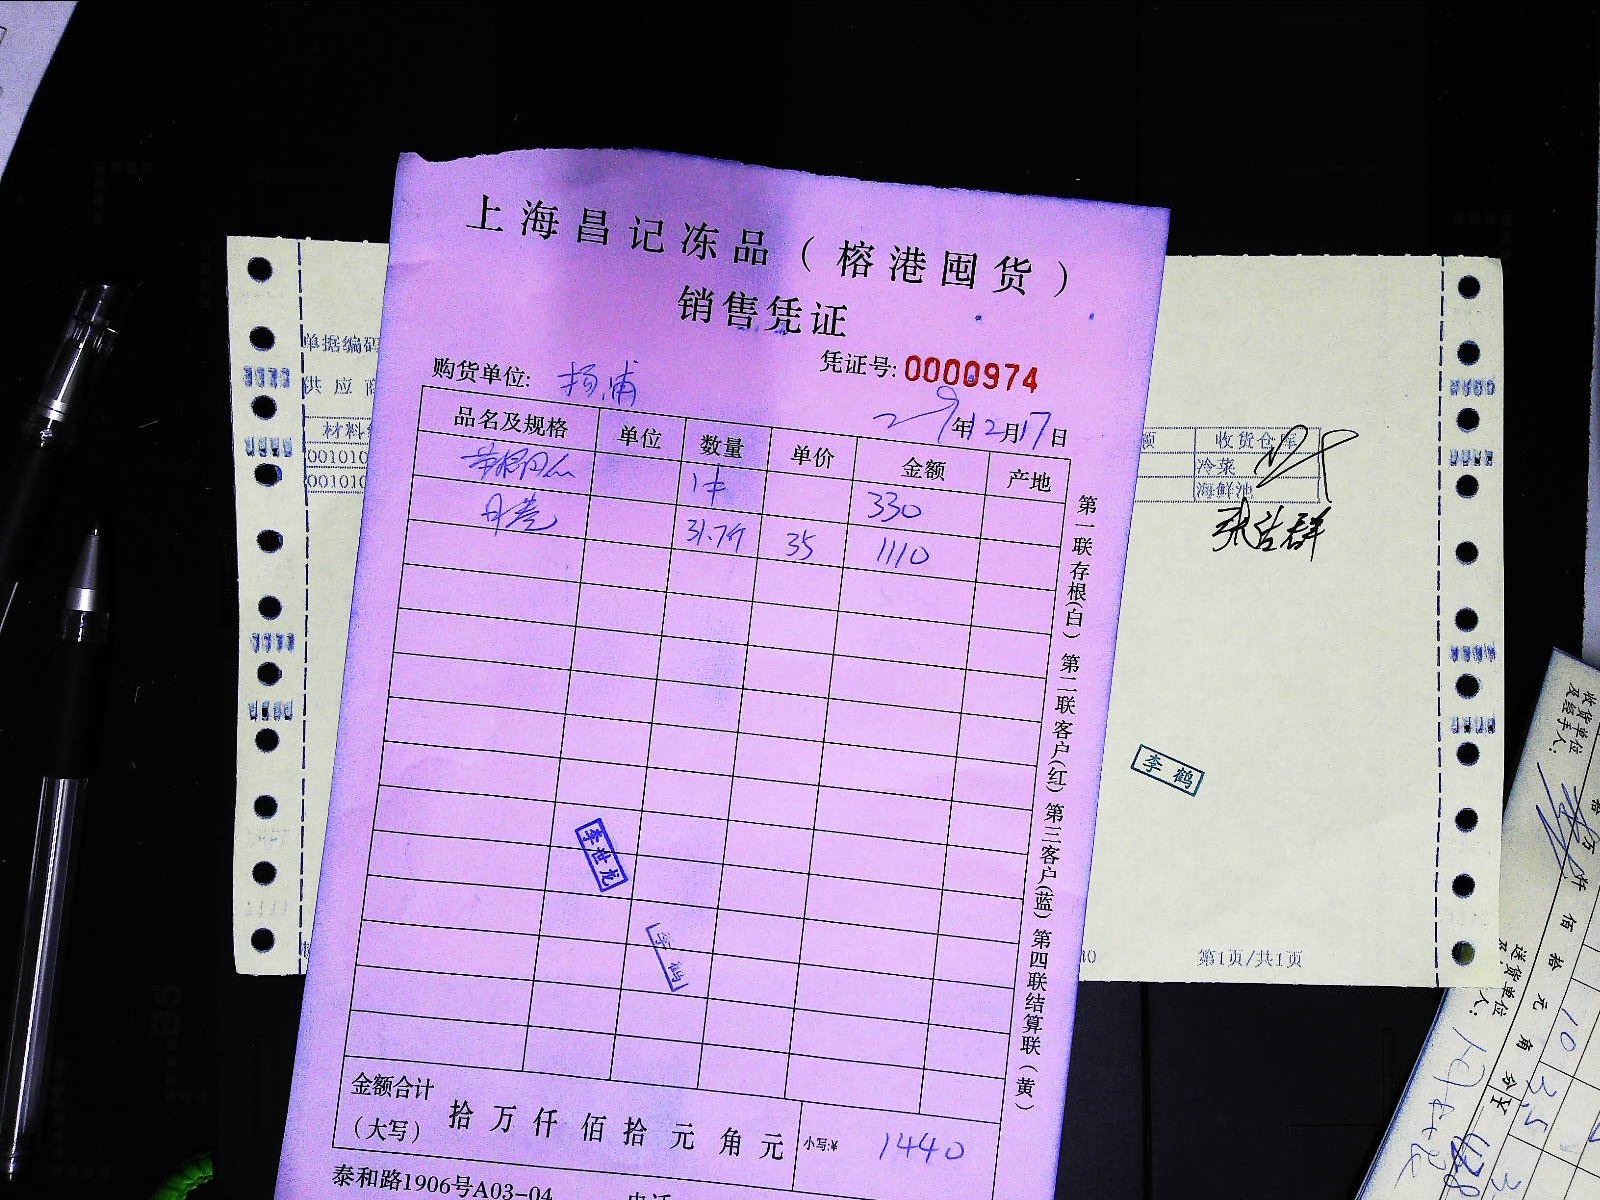 上海昌记冻品（榕港囤货）
销售凭证
凭证号: 0000974
购货单位: 杨浦
29年12月17日
品名及规格 单位 数量 单价 金额 产地
1件 330
丹卷 31.7斤 35 1110
金额合计（大写） 拾 万 仟 佰 拾 元 角 元 小写:¥ 1440
泰和路1906号A03-04
第一联存根(白) 第二联客户(红) 第三客户(蓝) 第四联结算联(黄)
李世龙
李鹤
单据编码
供应商
材料
001010
001010
额 收货仓库
冷菜
海鲜池
李鹤
第1页/共1页
收货单位及经手人:
仟 佰 拾 元 角 分
送货单位
人: